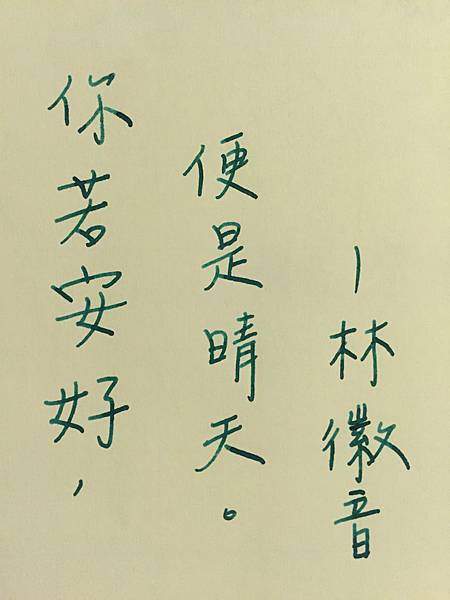 你若安好，
便是晴天。
－林徽音